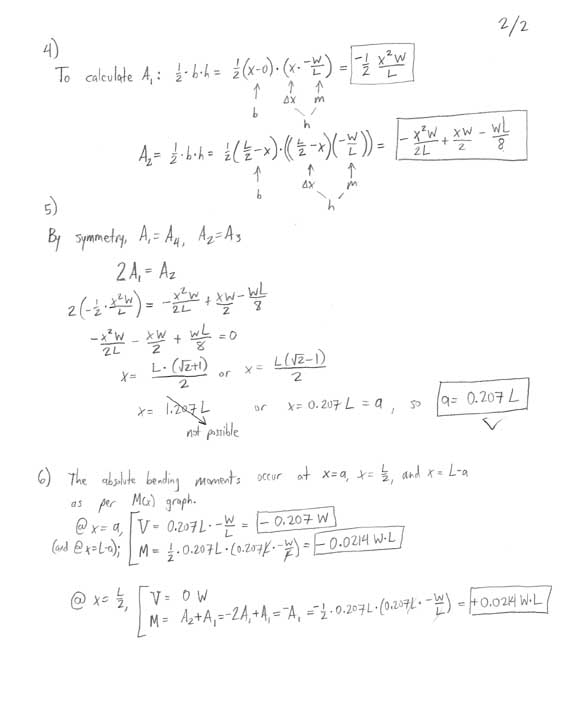 2/2
4)
To calculate A₁: ½·b·h = ½(x-0)·(x·-W/L) = -½ x²W/L
↑ ↑ ↑
b Δx m
h
A₂ = ½·b·h = ½(L/2-x)·((L/2-x)(-W/L)) = -x²W/2L + xW/2 - WL/8
↑ ↑ ↑
b Δx m
h
5)
By symmetry, A₁=A₄, A₂=A₃
2A₁=A₂
2(-½·x²W/L) = -x²W/2L + xW/2 - WL/8
-x²W/2L - xW/2 + WL/8 = 0
x= L·(√2+1)/2 or x= L(√2-1)/2
x= 1.207L or x=0.207L = a, so a=0.207L
not possible
6) The absolute bending moments occur at x=a, x=L/2, and x=L-a
as per M(x) graph.
@x=a, V=0.207L·-W/L = -0.207W
(and @x=L-a); M=½·0.207L·(0.207L·-W/L) = -0.0214W·L
@ x=L/2, V= 0 W
M= A₂+A₁=-2A₁+A₁=-A₁=-½·0.207L·(0.207L·-W/L) = +0.0214W·L